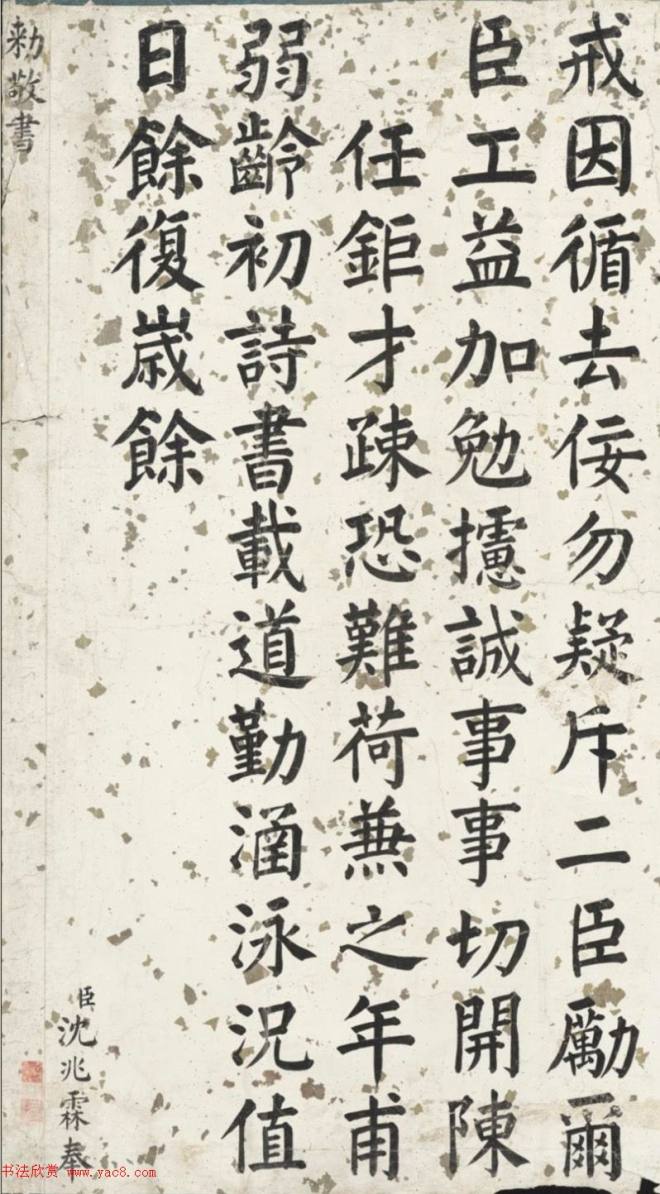 戒因循去佞勿疑斥二臣勵爾
臣工益加勉攄誠事事切開陳
任鉅才疎恐難荷蒹之年甫
弱齡初詩書載道勤涵泳況值
日餘復歲餘
臣沈兆霖奉
勅敬書
书法欣赏 www.yac8.com